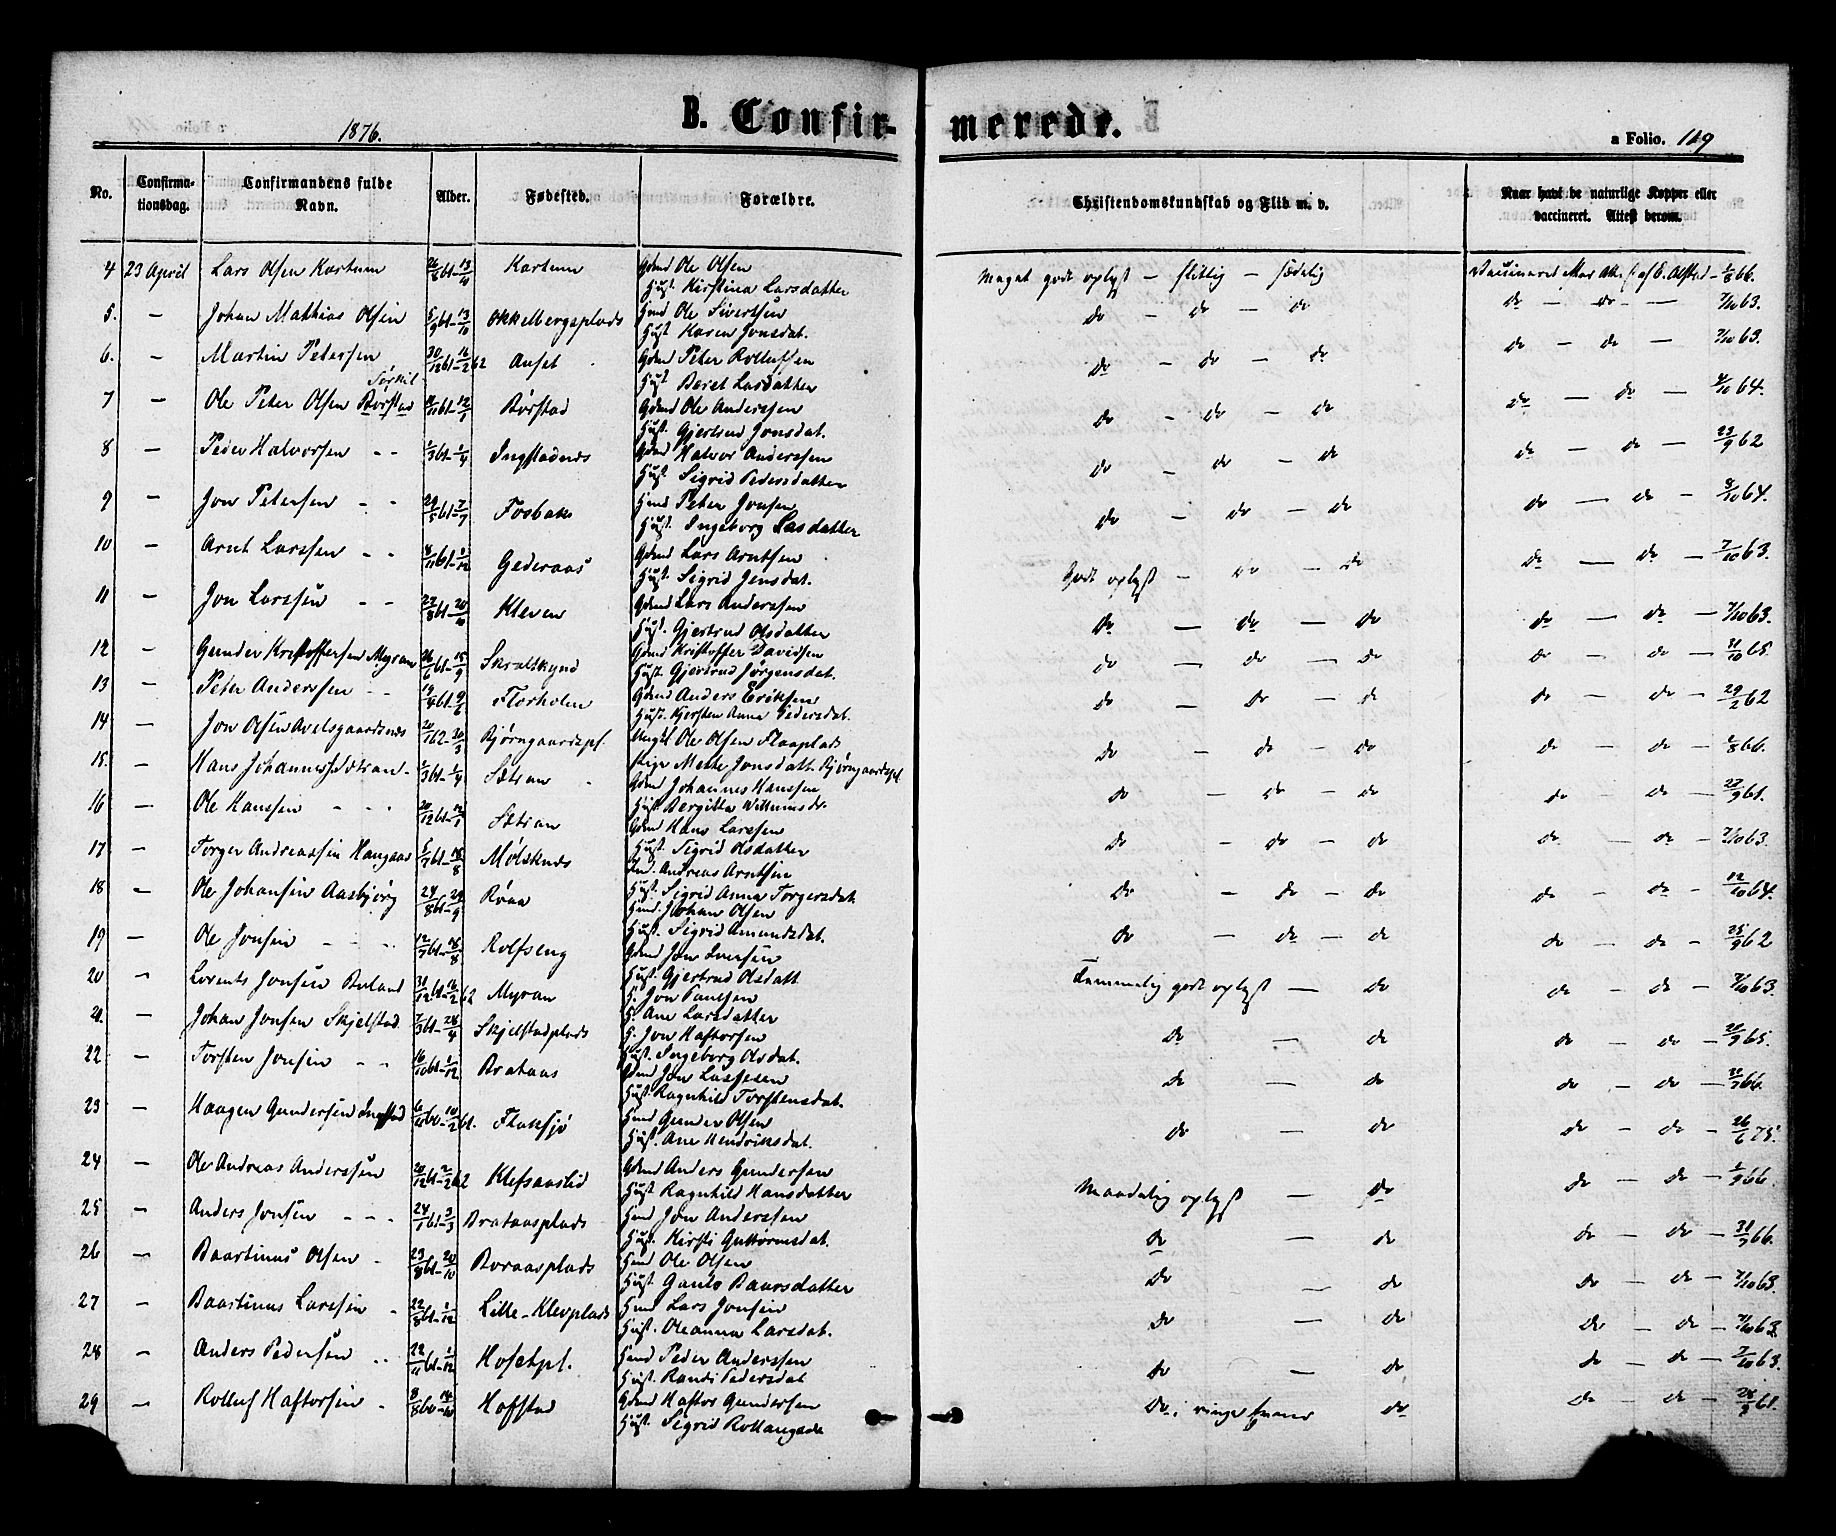 1876.
B. Confir-
merede.
a Folio. 119
No.
Confirma-
tionsdag.
Confirmandens fulde
Navn.
Alder.
Fødested.
Forældre.
Christendomskundskab og Flid m. v.
Naar havt de naturlige Kopper eller
vaccineret. Attest derom.
4 23 April Lars Olsen Kartum 26/8 61 - 13/10 Kartum Gdmd Ole Olsen
Hust. Kirstina Larsdatter
Meget godt oplyst - flittig - sædelig 1/8 66.
5. - Johan Mathias Olsen 5/9 61 - 13/10 Okkelbergsplads Hmd Ole Sivertsen
Hust Karen Jonsdat.
do - do - do do - do - 7/10 63.
6. - Martin Petersen 30/12 61 - 16/2 62 Auset Gdmd Peter Rolluffsen
Hust Beret Larsdatter
do - do - do do - do - 7/10 63.
7 - Ole Peter Olsen Borstad Børstad Gdmd Ole Anderssen
Hust. Gjertrud Jonsdat.
do - do - do do - do - /10 64.
8 - Peder Halvorsen - - 1/3 61 - 1/4 Ingstadnes Gdmd Halvor Anderssen
Hust. Sigrid Pedersdatter
do - do - do do - do - 23/9 62
9 - Jon Petersen - - 29/5 61 - 7/7 Fosbak Hmd Peter Jonsen
Hust. Ingeborg Lasdatter
do - do - do do - do - 8/10 64.
10 - Arnt Larssen - - 4/11 61 - 1/12 Gederaas Gdmd Lars Arntsen
Hust. Sigrid Jensdat.
Godt oplyst - do - do do - do - 7/10 63.
11 - Jon Larssen - - 27/8 61 - 20/10 Kleven Gdmd Lars Anderssen
Hust. Gjertrud Olsdatter
do - do - do do - do - 7/10 63.
12 - Gunder Kristoffersen Myran 26/6 61 - 15/9 Skraltkynd Gdmd Kristoffer Davidsen
Hust. Gjertrud Jørgensdat.
do - do - do do - do - 31/10 65.
13 - Peter Anderssen - - 19/4 61 - 9/6 Florholen Gdmd Anders Eriksen
Hust. Kjersten Anna Pedersdat.
do - do - do do - do - 29/2 62
14 - Jon Olsen Avelsgaardsnes 20/1 62 - 30/3 Bjørngaardspl. Ungkl Ole Olsen Flaaplads
Pige Mette Jonsdatt. Bjørngaardspl.
do - do - do do - do - 1/8 66.
15. - Hans Johannessen Sætran - 1/3 61 - 1/4 Sætran Gdmd Johannes Hanssen
Hust. Bergitta Willumsdr.
do - do - do do - do - 27/9 61.
16 - Ole Hanssen - - - 20/12 61 - 12/1 Sætran Gdmd Hans Larssen
Hust. Sigrid Olsdatter
do - do - do do - do - 7/10 63.
17 - Torger Andreassen Haugaas 5/7 61 - 18/8 Mølsknes Ind. Andreas Arntsen
Hust. Sigrid Anna Torgersdat.
do - do - do do - do - 12/10 64.
18 - Ole Johansen Aasbjørg 24/8 61 - 29/9 Røaa Hmd. Johan Olsen
Hust. Sigrid Amundsdat.
do - do - do do - do - 25/9 62
19 - Ole Jonsen - - - 12/7 61 - 18/8 Rolfseng Gdmd Jon Iversen
Hust. Gjertrud Olsdatt
Temmelig godt oplyst - do do - do - 7/10 63.
20 - Lorents Jonsen Buland 31/12 61 - 16/2 62 Myran G. Jon Paulsen
H. Ane Larsdatter
do - do do - do - 20/9 65.
21. - Johan Jonsen Skjelstad. 7/3 61 - 28/4 Skjelstadplads G. Jon Haftorsen
Hust. Ingeborg Olsdat.
do - do do - do - 66.
22 - Torsten Jonsen - - 16/10 61 - 1/12 Brataas Gdmd Jon Lassesen
Hust. Ragnhild Torstensdat.
do - do do - do - 26/6 75.
23 - Haagen Gundersen Ingstad 60 - 10/2 61. Floksjø Hmd Gunder Olsen
Hust. Ane Hendriksdat.
24 - Ole Andreas Anderssen 20/12 61 - 2/2 62 Klefsaaslid Gdmd Anders Gundersen
Hust Ragnhild Hansdatter
Maadelig oplyst - do do - do - 1/9 66.
25 - Anders Jonsen - - - 24/1 61 - 3/3 Brataasplads Hmd Jon Anderssen
Hust. Kirsti Guttormsdat.
do - do do - do - 31/7 66.
26 - Baartinus Olsen - 23/8 61 - 20/10 Boraasplads Hmd Ole Olsen
Hust. Ganlo Baarsdatter
do - do do - do - 7/10 63.
27 - Baartinus Larssen - 22/8 61 - 1/12 Lille-Klevplads Hmd Lars Jonsen
Hust. Oleanna Larsdat.
do - do do - do - 7/10 63.
28 - Anders Pedersen - - 22/11 61 - 1/12 Hosetpl. Hmd Peder Anderssen
Hust. Randi Pedersdat
do - do do - do - 7/10 63.
29 - Rolluf Haftorsen - 8/8 60 - 14/10 Hofstad Gdmd Haftor Gundersen
Hust. Sigrid
do, i ringe do do - do - 28/9 61.